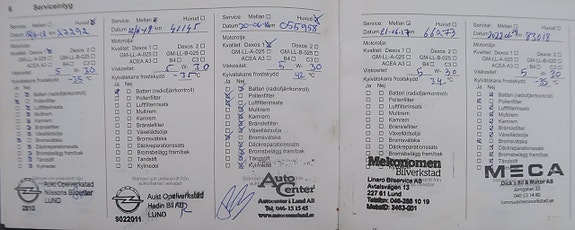 8 Serviceintyg
Service: Mellan Huvud
Datum km 37292
Motorolja:
Kvalitet: Dexos 1 Dexos 2
GM-LL-A-025 GM-LL-B-025
ACEA A3 B4 C3
Viskositet: 5 W 30
Kylvätskans frostskydd
-35 °C
Ja Nej
Batteri (radiofjärrkontroll)
Pollenfilter
Luftfilterinsats
Multirem
Kamrem
Bränslefilter
Växellådsolja
Bromsvätska
Däckreparationssats
Bromsbelägg fram/bak
Tändstift
Kylmedel
Aukt Opelverkstad
Nissans Biljeer
2810
LUND
Service: Mellan Huvud
Datum km 41145
Motorolja:
Kvalitet: Dexos 1 Dexos 2
GM-LL-A-025 GM-LL-B-025
ACEA A3 B4 C3
Viskositet: 5 W 30
Kylvätskans frostskydd
-35 °C
Ja Nej
Batteri (radiofjärrkontroll)
Pollenfilter
Luftfilterinsats
Multirem
Kamrem
Bränslefilter
Växellådsolja
Bromsvätska
Däckreparationssats
Bromsbelägg fram/bak
Tändstift
Kylmedel
Aukt Opelverkstad
Hedin Bil AB
9022011 LUND
Service: Mellan Huvud
Datum km 056958
Motorolja:
Kvalitet: Dexos 1 Dexos 2
GM-LL-A-025 GM-LL-B-025
ACEA A3 B4 C3
Viskositet: 5 W 30
Kylvätskans frostskydd
42 °C
Ja Nej
Batteri (radiofjärrkontroll)
Pollenfilter
Luftfilterinsats
Multirem
Kamrem
Bränslefilter
Växellådsolja
Bromsvätska
Däckreparationssats
Bromsbelägg fram/bak
Tändstift
Kylmedel
Auto
Center
Autocenter i Lund AB
Tel. 046-13 15 45
www.autocenterlund.se
Service: Mellan Huvud
Datum 21-06-17 km 66077
Motorolja:
Kvalitet: Dexos 1 Dexos 2
GM-LL-A-025 GM-LL-B-025
ACEA A3 B4 C3
Viskositet: 5 W 30
Kylvätskans frostskydd
34 °C
Ja Nej
Batteri (radiofjärrkontroll)
Pollenfilter
Luftfilterinsats
Multirem
Kamrem
Bränslefilter
Växellådsolja
Bromsvätska
Däckreparationssats
Bromsbelägg fram/bak
Mekonomen
Bilverkstad
Linero Bilservice AB
Avtalsvägen 13
227 61 Lund
Telefon: 046-288 10 19
MekoID: 3463-001
Service: Mellan Huvud
Datum km 83018
Motorolja:
Kvalitet: Dexos 1 Dexos 2
GM-LL-A-025 GM-LL-B-025
ACEA A3 B4 C3
Viskositet: 5 W 30
Kylvätskans frostskydd
-35 °C
Ja Nej
Batteri (radiofjärrkontroll)
Pollenfilter
Luftfilterinsats
Multirem
Kamrem
Bränslefilter
Växellådsolja
Bromsvätska
Däckreparationssats
Bromsbelägg fram/bak
Tändstift
MECA
Dick's Bil & Motor AB